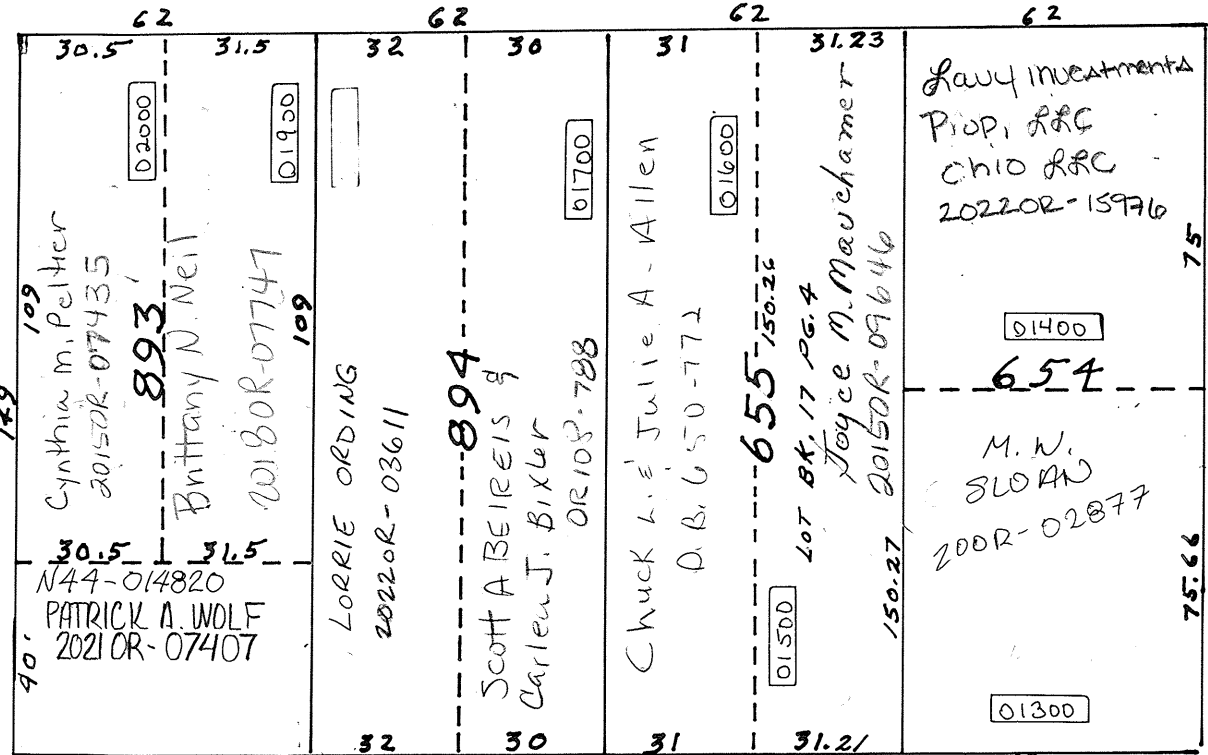 62 62 62 62
30.5 31.5 32 30 31 31.23
02000
01900
Cynthia M. Peltier
2015OR-07435
893
Brittany N. Neil
2018OR-07747
109
109
149
30.5 31.5
N44-014820
PATRICK A. WOLF
2021OR-07407
40'
LORRIE ORDING
2022OR-03611
32
894
01700
Scott A BEIREIS &
Carlen J. Bixler
OR108-788
30
01600
Chuck L. & Julie A. Allen
D.B. 650-772
31
655
150.26
LOT BK. 17 PG. 4
Joyce M. Mauchamer
2015OR-09646
01500
150.27
31.21
Lavy Investments
Prop, LLC
Ohio LLC
2022OR-15976
75
01400
654
M. W.
SLOAN
200R-02877
75.66
01300